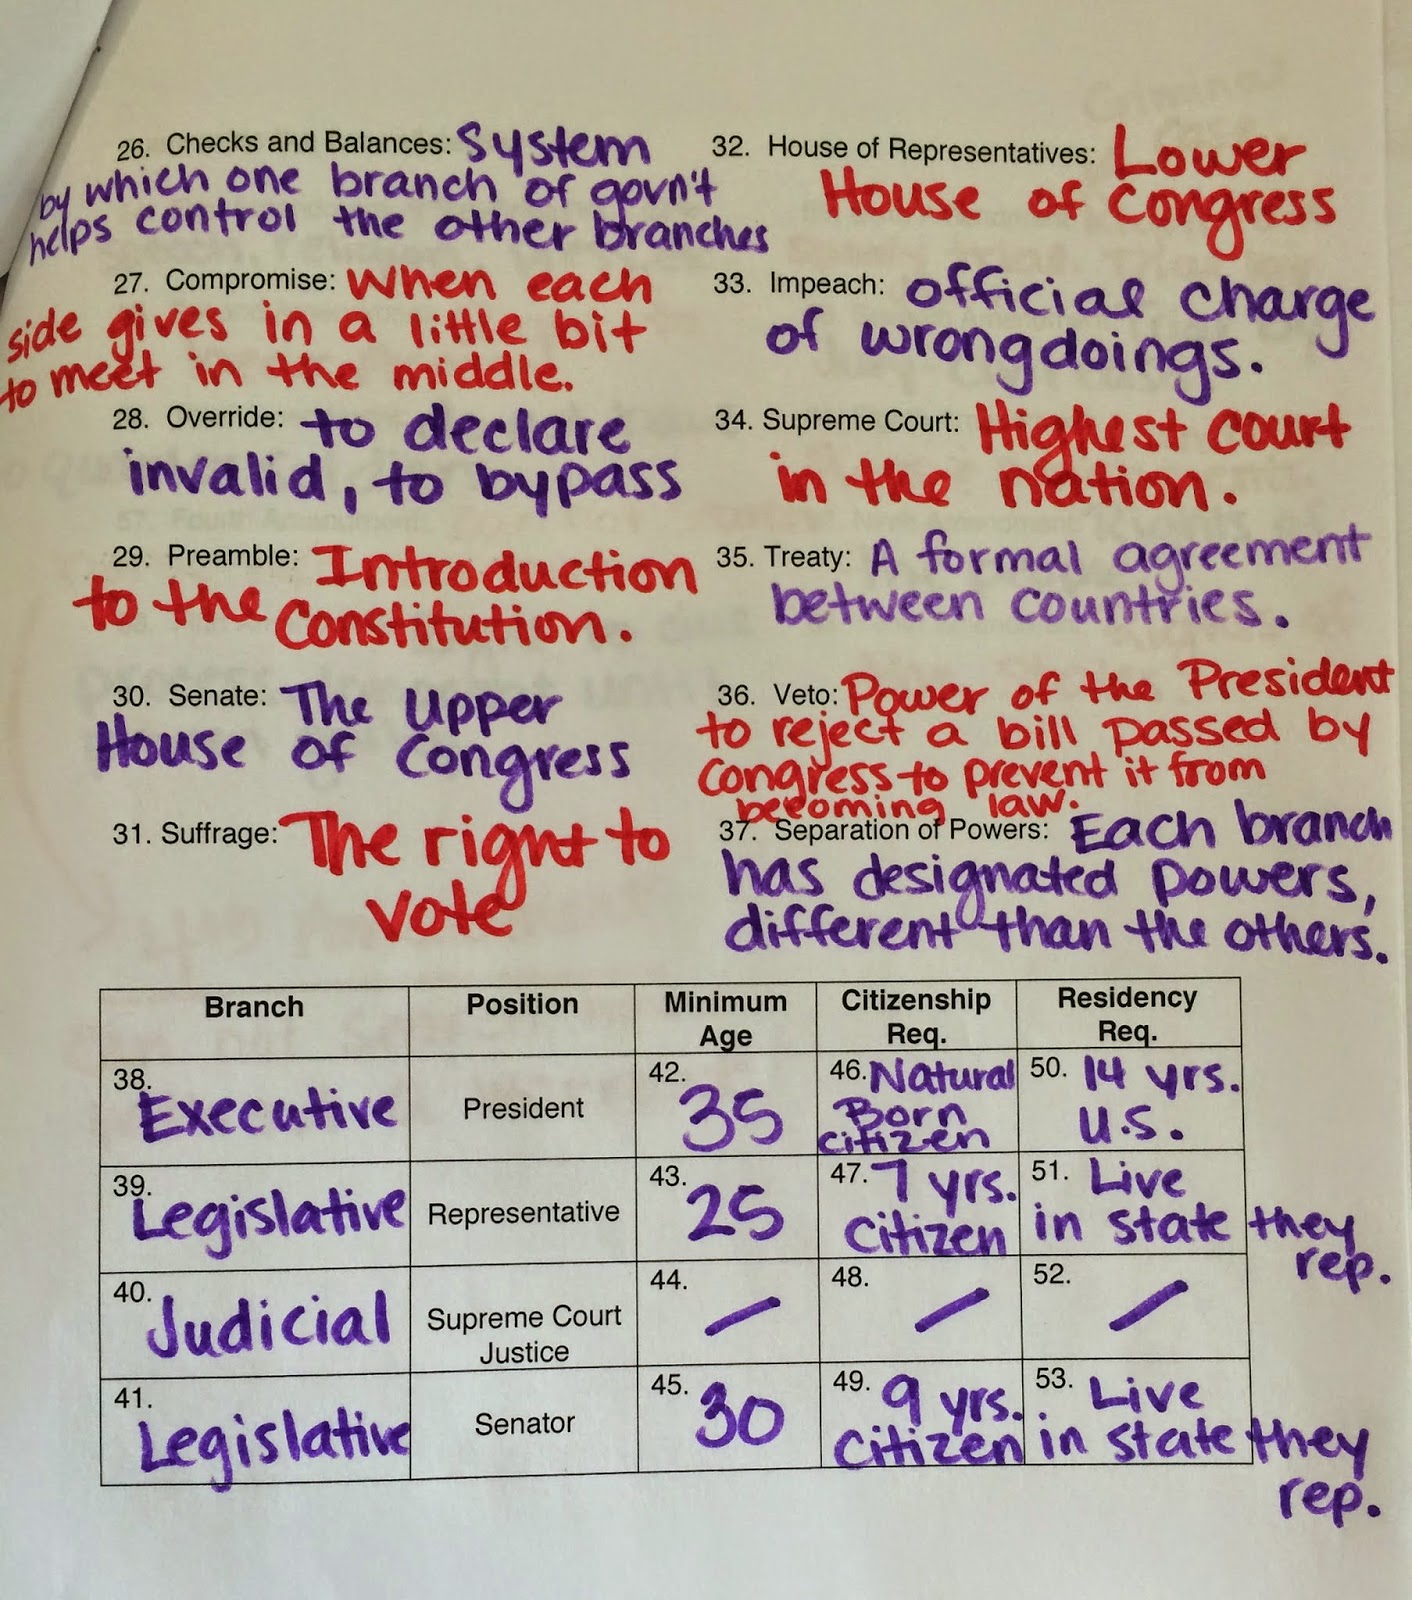 26. Checks and Balances: System
by which one branch of govn't
helps control the other branches
27. Compromise: When each
side gives in a little bit
to meet in the middle.
28. Override: to declare
invalid, to bypass
29. Preamble: Introduction
to the Constitution.
30. Senate: The Upper
House of Congress
31. Suffrage: The right to
vote
32. House of Representatives: Lower
House of Congress
33. Impeach: official charge
of wrongdoings.
34. Supreme Court: Highest court
in the nation.
35. Treaty: A formal agreement
between countries.
36. Veto: Power of the President
to reject a bill passed by
Congress to prevent it from
becoming law.
37. Separation of Powers: Each branch
has designated powers,
different than the others.
Branch Position Minimum Age Citizenship Req. Residency Req.
38. Executive President 42. 35 46. Natural Born citizen 50. 14 yrs. U.S.
39. Legislative Representative 43. 25 47. 7 yrs. Citizen 51. Live in state they rep.
40. Judicial Supreme Court Justice 44. — 48. — 52. —
41. Legislative Senator 45. 30 49. 9 yrs. Citizen 53. Live in state they rep.